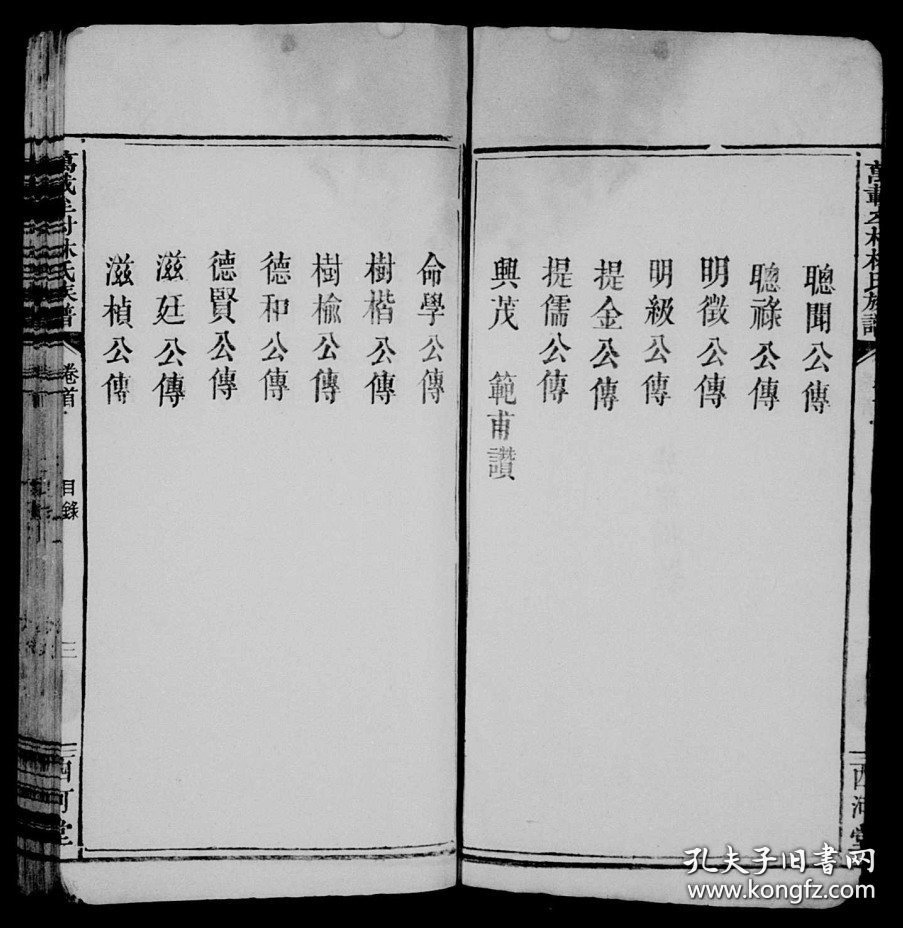 聰聞公傳
聰祿公傳
明徵公傳
明級公傳
提金公傳
提儒公傳
興茂 範甫讚
命學公傳
樹楷公傳
樹榆公傳
德和公傳
德賢公傳
滋廷公傳
滋楨公傳
林氏族譜
卷首
目錄
三
西河堂
林氏族譜
西河堂
孔夫子旧书网
www.kongfz.com